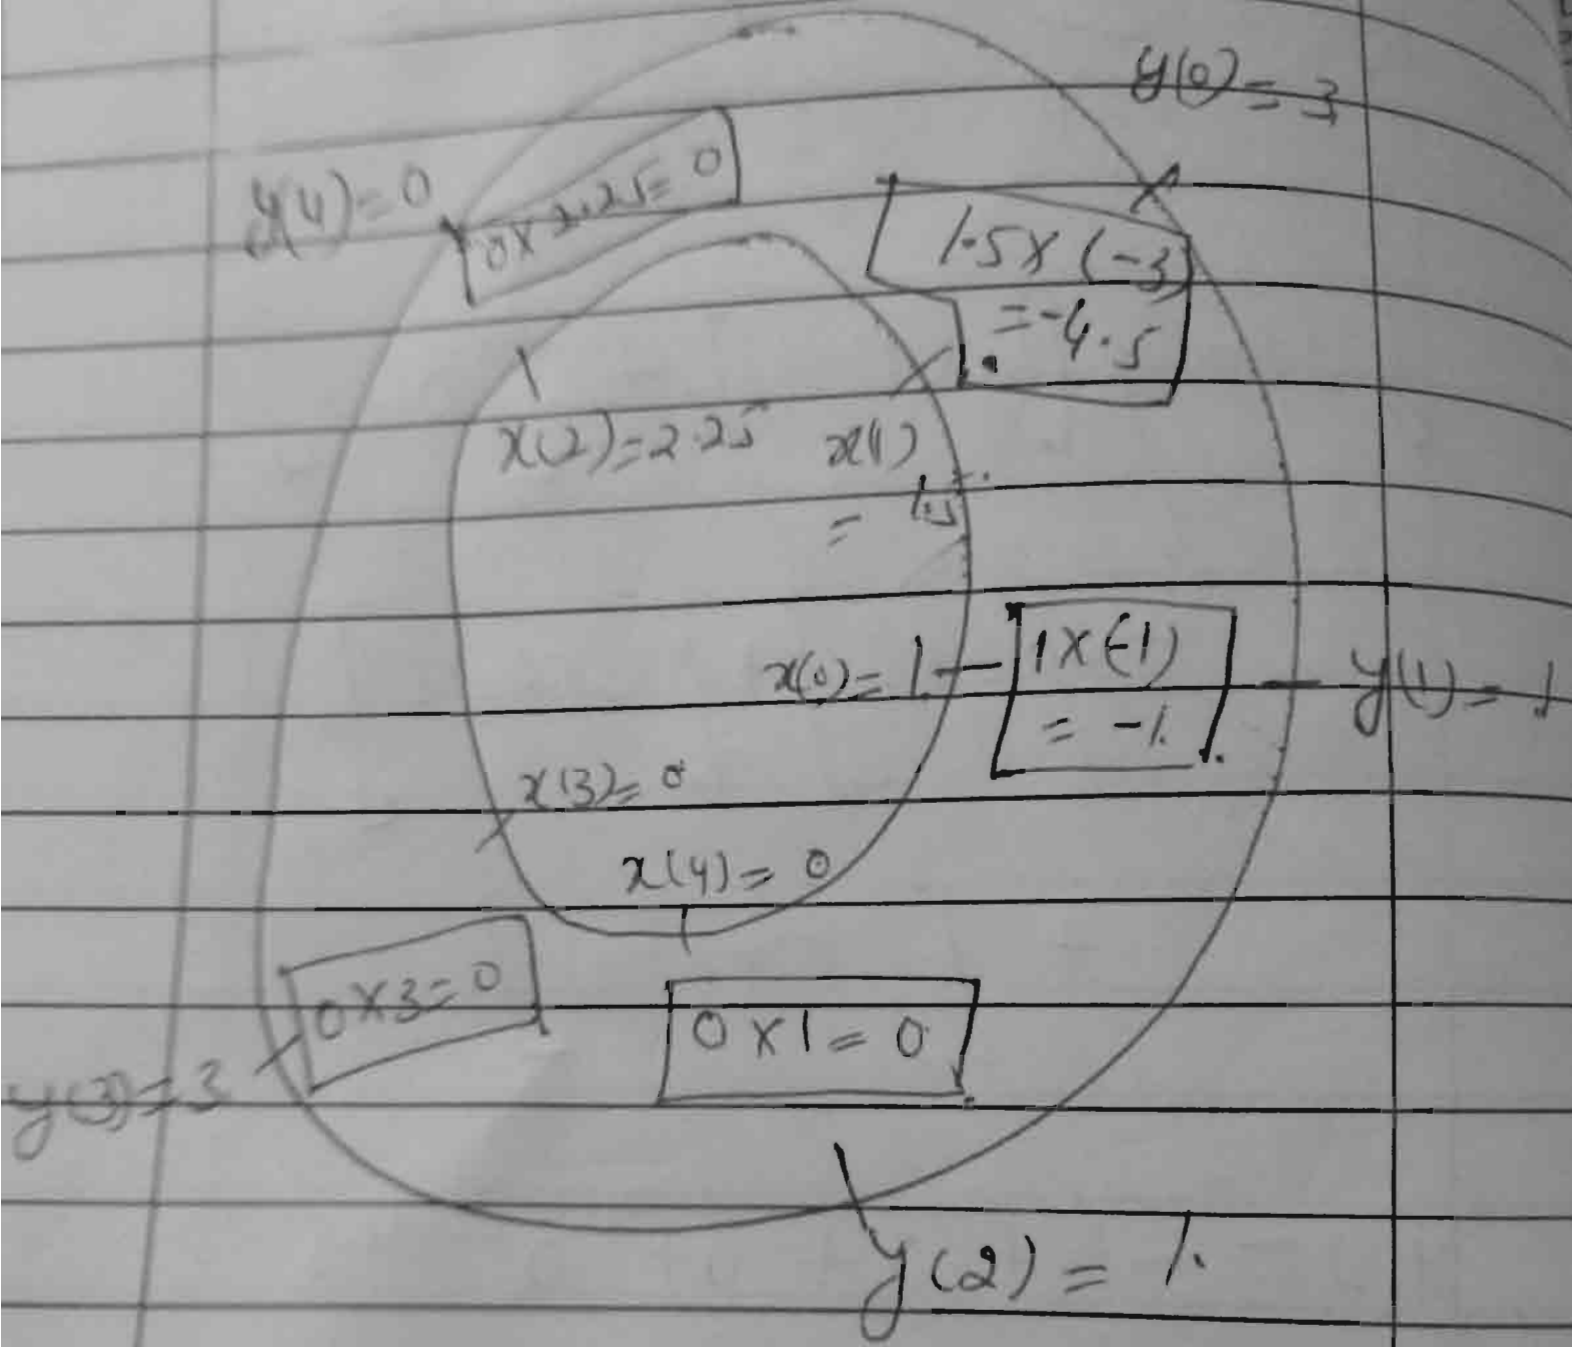 y(0) = 3
y(4) = 0
0 x 2.25 = 0
1.5 x (-3)
= -4.5
x(2) = 2.25
x(1)
= 1.5
x(0) = 1.
1 x (-1)
= -1.
y(1) = 1
x(3) = 0
x(4) = 0
0 x 3 = 0
0 x 1 = 0
y(3) = 3
y(2) = 1.